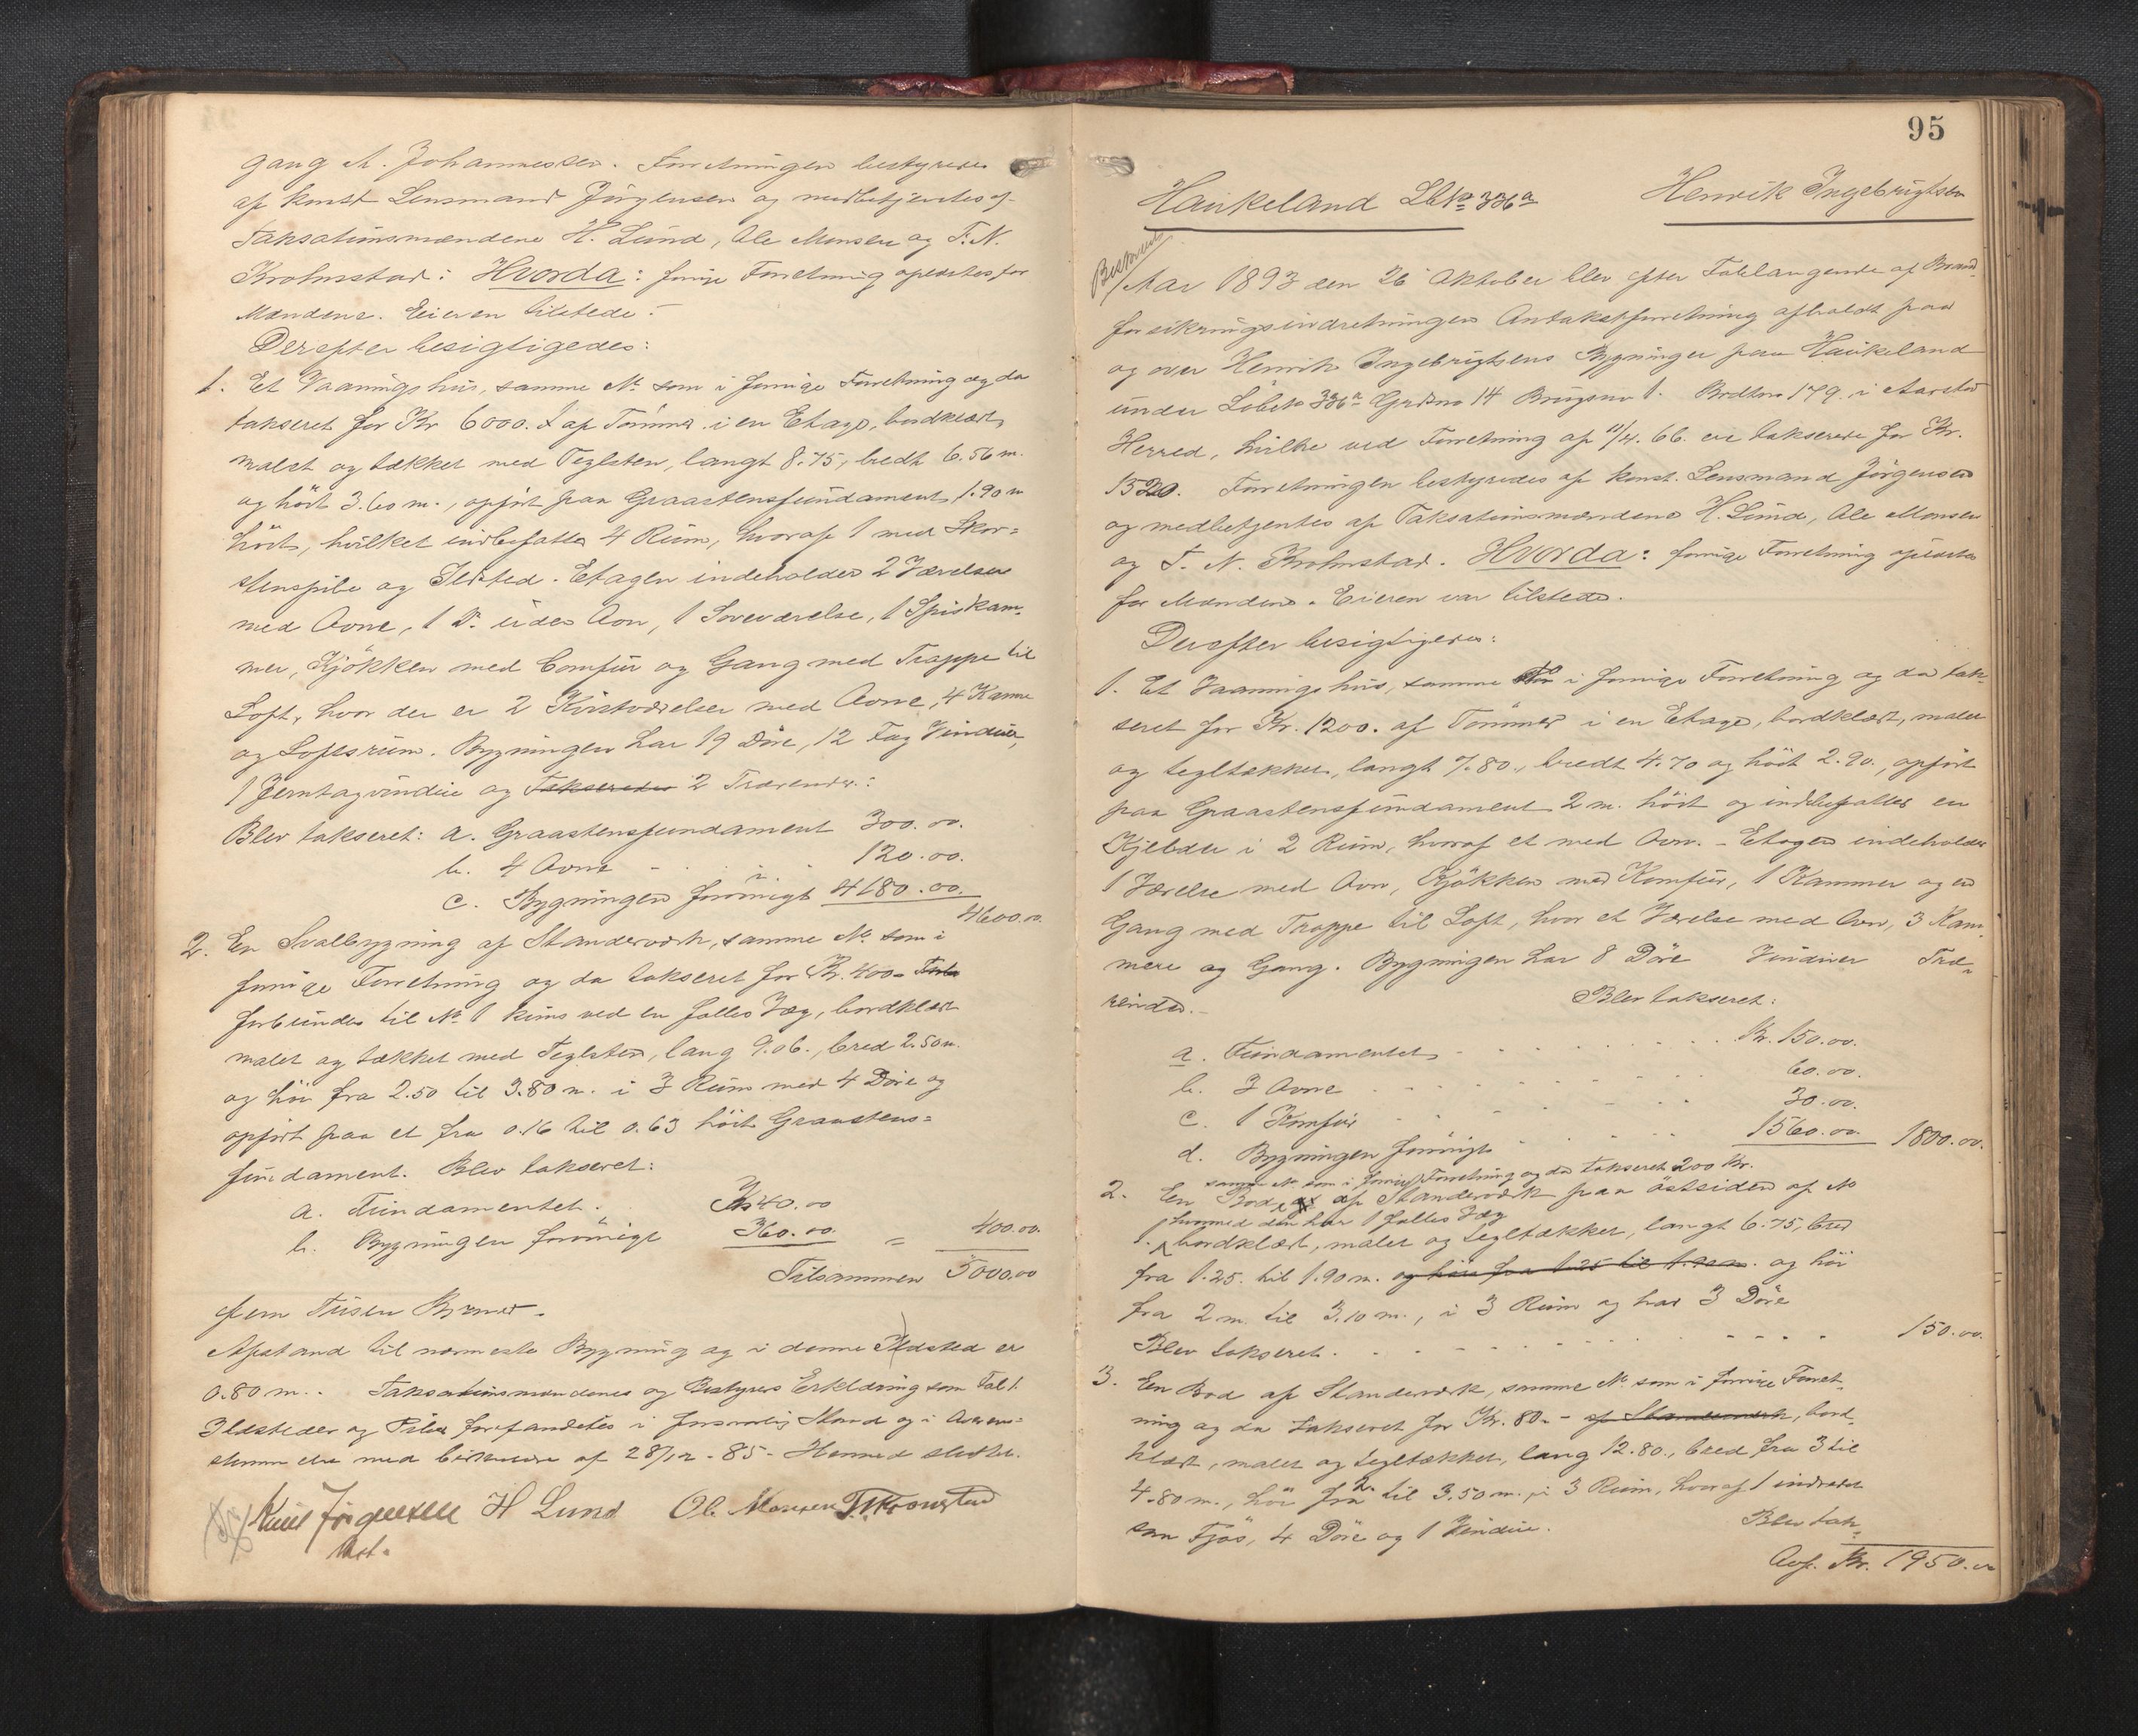 gang A. Johannessen. Forretningen bestyredes
af konst Lensmand Jörgensen og medbetjentes af
Taksationsmændene H. Lund, Ole Monsen og T. N.
Krohnstad: Hvorda: forrige Forretning oplæstes for
Mændene. Eieren tilstede.-
Derefter besigtigedes:
1. Et Vaaningshus, samme No som i forrige Forretning og da
takseret for Kr 6000. af Tömmer i en Etage, bordklædt,
malet og tækket med Teglsten, langt 8.75, bredt 6.56 m.
og höit 3.60 m., opfört paa Graastensfundament 1.90 m
höit, hvilket indbefatter 4 Rum, hvoraf 1 med Skor=
stenspibe og Ildsted. Etagen indeholder 2 Værelser
med Ovne, 1 Do uden Ovn, 1 Soveværelse, 1 Spiskam-
mer, Kjökken med Comfur og Gang med Trappe til
Loft, hvor der er 2 Kvistværelser med Ovne, 4 Kamre
og Loftsrum. Bygningen har 19 Döre, 12 Fag Vinduer,
1 Jerntagvindue og Takseredes 2 Trærender.:
Blev takseret: a. Graastensfundament 300.00.
b. 4 Ovne - . . . 120.00.
c. Bygningen forövrigt 4180.00.
4600.00.
2. En Svalbygning af Standerværk, samme No som i
forrige Forretning og da takseret for Kr. 400-
forbunden til No 1 kuns ved en fælles Væg, bordklædt
malet og tækket med Teglsten, lang 9.06., bred 2.50 m.
og höi fra 2.50 til 3.80 m. i 3 Rum med 4 Döre og
opfört paa et fra 0.16 til 0.63 höit Graastens=
fundament. Blev takseret:
a. Fundamentet . Kr 40.00
b. Bygningen forövrigt 360.00 = 400.00.
Tilsammen 5000.00
Fem Tusen Kroner.
Afstand til nærmeste Bygning og i denne Ildsted er
0.80 m.. Taksationsmændenes og Bestyrers Erklæring som Fol 1.
Ildsteder og Piber forefandtes i forsvarlig Stand og i Overens=
stemmelse med af 28/12-85- Hermed sluttet.
Jörgensen H Lund Ol. Monsen T. N. Kronstad
kst.
95
Haukeland LbNo 336a Henrik Ingebrigtsen
Aar 1893 den 26 Oktober blev efter Forlangende af Brand-
forsikringsindretningen Omtakstforretning afholdt paa
og over Henrik Ingebrigtsens Bygninger paa Haukeland
under Löbeno 336a Grdsno 14 Brugsno 1. Brdtno 179. i Aarstad
Herred, hvilke ved Forretning af 11/4. 66. ere takserede for Kr.
1520. Forretningen bestyredes af konst. Lensmand Jörgensen
og medbetjentes af Taksationsmændene H. Lund, Ole Monsen
og T. N. Krohnstad. Hvorda: forrige Forretning oplæstes
for Mændene. Eieren var tilstede.
Derefter besigtigedes:
1. Et Vaaningshus, samme No i forrige Forretning og da tak-
seret for Kr. 1200. af Tömmer i en Etage, bordklædt, malet
og tegltækket, langt 7.80., bredt 4.70 og höit 2.90., opfört
paa Graastensfundament 2 m. höit og indbefatter en
Kjelder i 2 Rum, hvoraf et med Ovn. - Etagen indeholder
1 Værelse med Ovn, Kjökken med Komfur, 1 Kammer og en
Gang med Trappe til Loft, hvor et Værelse med Ovn, 3 Kam-
mere og Gang. Bygningen har 8 Döre Vinduer Træ-
render.- Blev takseret:
a. Fundamentet - . . . . Kr. 150.00.
b. 3 Ovne . . . . 60.00.
c. 1 Komfur . . . . 30.00.
d. Bygningen forövrigt . . . . 1560.00. 1800.00.
samme No som i forrige Forretning og da takseret 200 Kr.
2. En Bod af Standerværk paa östsiden af No
hvormed den har 1 fælles Væg
1. bordklædt, malet og tegltækket, langt 6.75, bred
fra 1.25. til 1.90 m. og höi fra 1.25 til 1.90 m. og höi
fra 2 m. til 3.10 m., i 3 Rum og har 3 Döre
Blev takseret. . . . . 150.00.
3. En Bod af Standerværk, samme No som i forrige Forret-
ning og da takseret for Kr. 80.- af Standerværk, bord-
klædt, malet og tegltækket, lang 12.80., bred fra 3 til
4.80 m., höi fra 2 til 3.50 m. i 3 Rum, hvoraf 1 indredet
som Fjös, 4 Döre og 1 Vindue. Blev tak-
Ovf. Kr. 1950.00